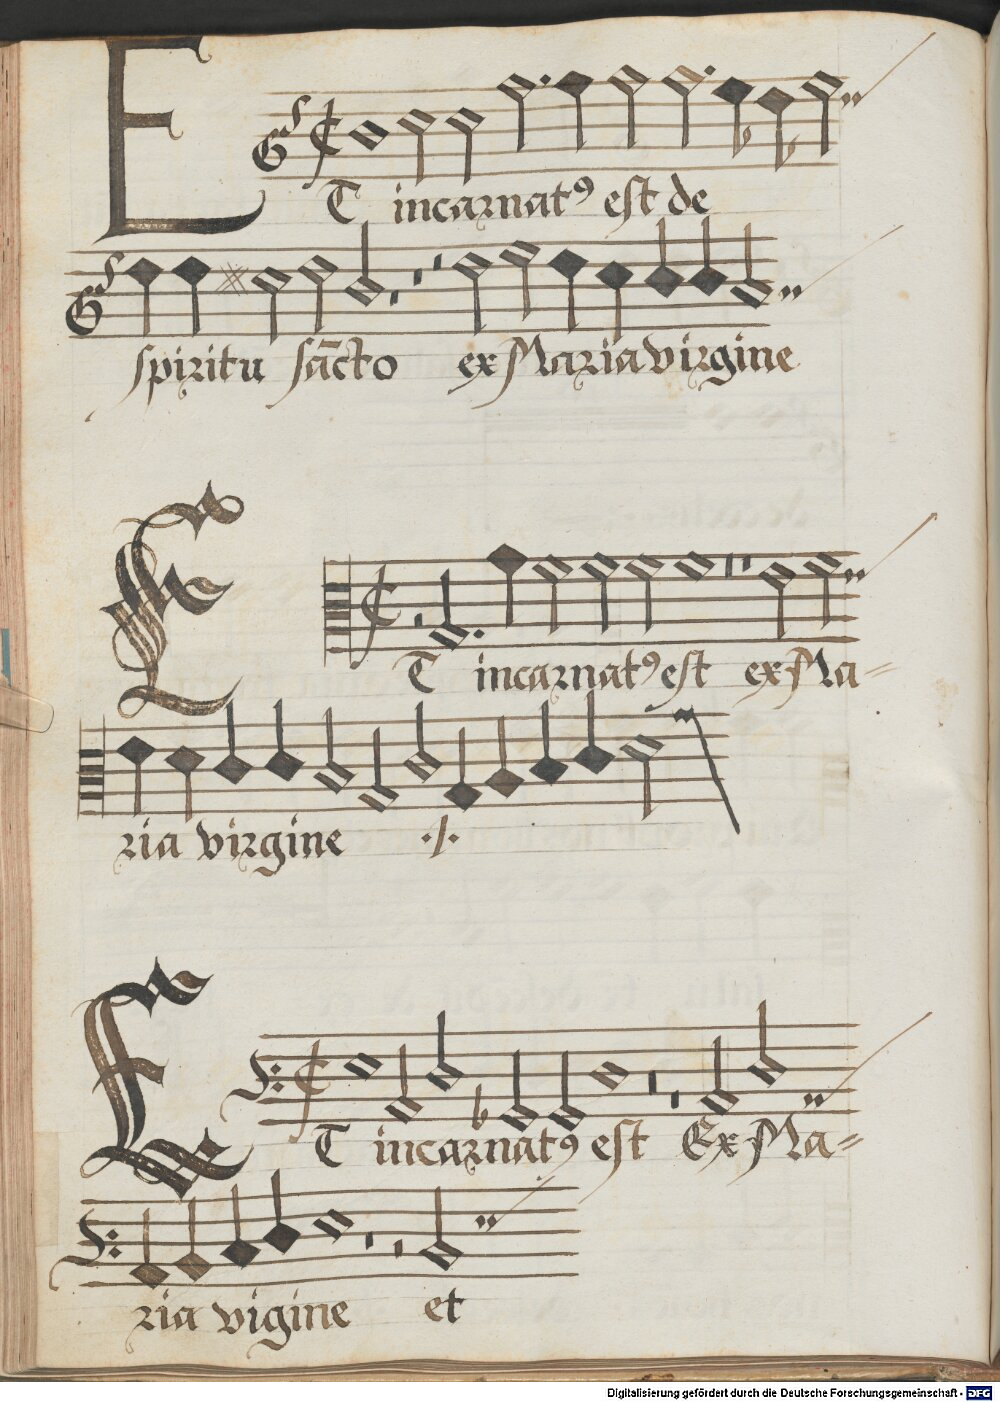 ET incarnatꝰ est de
spiritu sācto ex Maria virgine
ET incarnatꝰ est ex Ma=
ria virgine ·/·
ET incarnatꝰ est Ex Ma=
ria vigine et
Digitalisierung gefördert durch die Deutsche Forschungsgemeinschaft - DFG